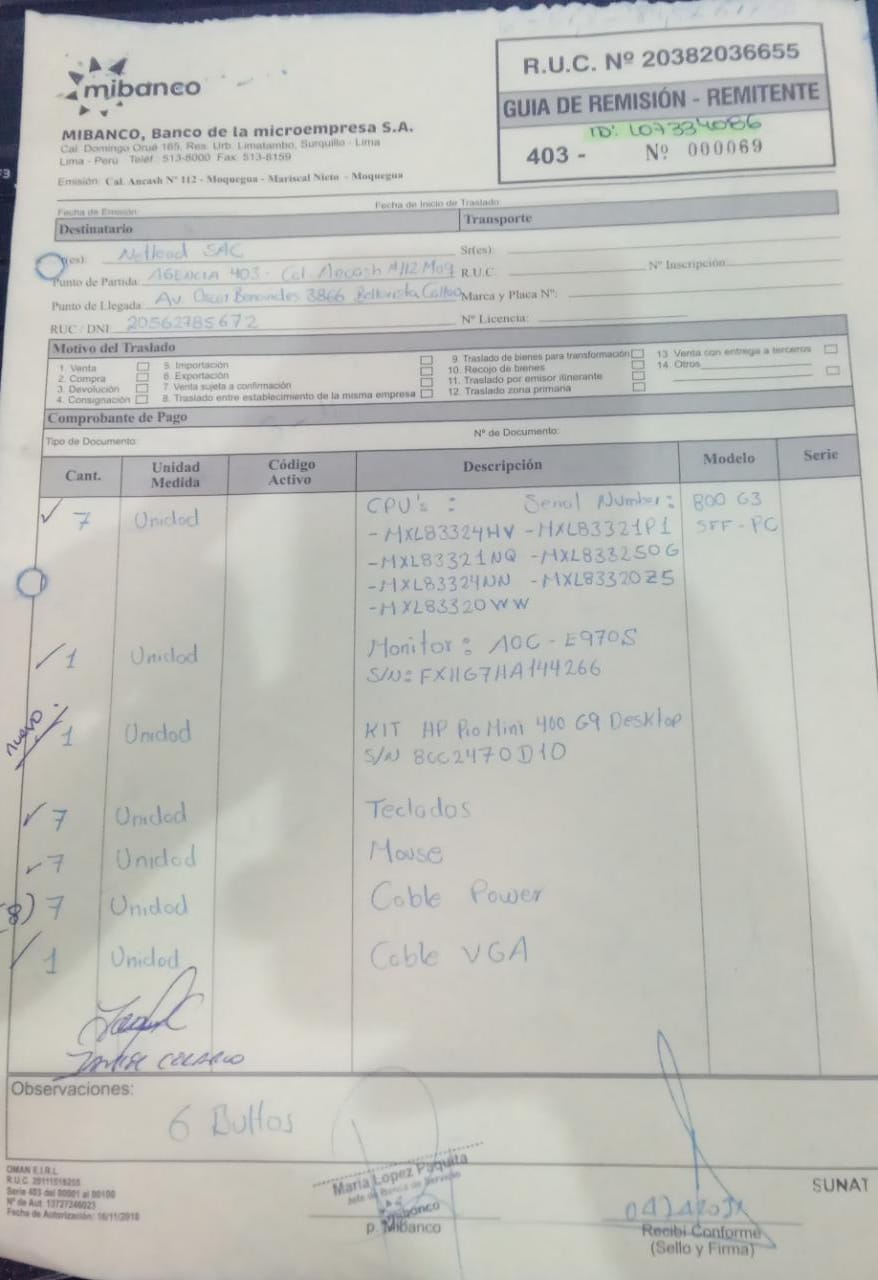 mibanco
R.U.C. Nº 20382036655
GUIA DE REMISIÓN - REMITENTE
ID: L07334086
403 - Nº 000069
MIBANCO, Banco de la microempresa S.A.
Cal. Domingo Orué 165, Res. Urb. Limatambo, Surquillo - Lima
Lima - Perú Teléf: 513-8000 Fax: 513-8159
Emisión: Cal. Ancash Nº 112 - Moquegua - Mariscal Nieto - Moquegua
Fecha de Emisión: Fecha de Inicio de Traslado:
Destinatario Transporte
(es): Netlead SAC Sr(es):
Punto de Partida: AGENCIA 403 - Cal. Ancash #112 Moq R.U.C. Nº Inscripción:
Punto de Llegada: Av. Oscar Benavides 3866 Bellavista Callao Marca y Placa Nº:
RUC / DNI: 20562785672 Nº Licencia:
Motivo del Traslado
1. Venta 5. Importación 9. Traslado de bienes para transformación 13. Venta con entrega a terceros
2. Compra 6. Exportación 10. Recojo de bienes 14. Otros
3. Devolución 7. Venta sujeta a confirmación 11. Traslado por emisor itinerante
4. Consignación 8. Traslado entre establecimiento de la misma empresa 12. Traslado zona primaria
Comprobante de Pago
Tipo de Documento: Nº de Documento:
Cant. Unidad Medida Código Activo Descripción Modelo Serie
7 Unidad CPU's : Serial Number: 800 G3
-MXL83324HV -MXL83321P1 SFF-PC
-MXL83321NQ -MXL833250G
-MXL83324NN -MXL83320Z5
-MXL83320WW
1 Unidad Monitor: AOC - E970S
S/N: FXHG7HA144266
nuevo 1 Unidad KIT HP Pro Mini 400 G9 Desktop
S/N 8CC2470D10
7 Unidad Teclados
7 Unidad Mouse
(8) 7 Unidad Cable Power
1 Unidad Cable VGA
Observaciones:
6 Bultos
OMAN E.I.R.L
R.U.C. 20111518255
Serie 403 del 00001 al 00100
Nº de Aut. 13727246023
Fecha de Autorización: 16/11/2018
María Lopez Paquita
Jefe de Banca de Servicio
mibanco
p. Mibanco
SUNAT
Recibí Conforme
(Sello y Firma)